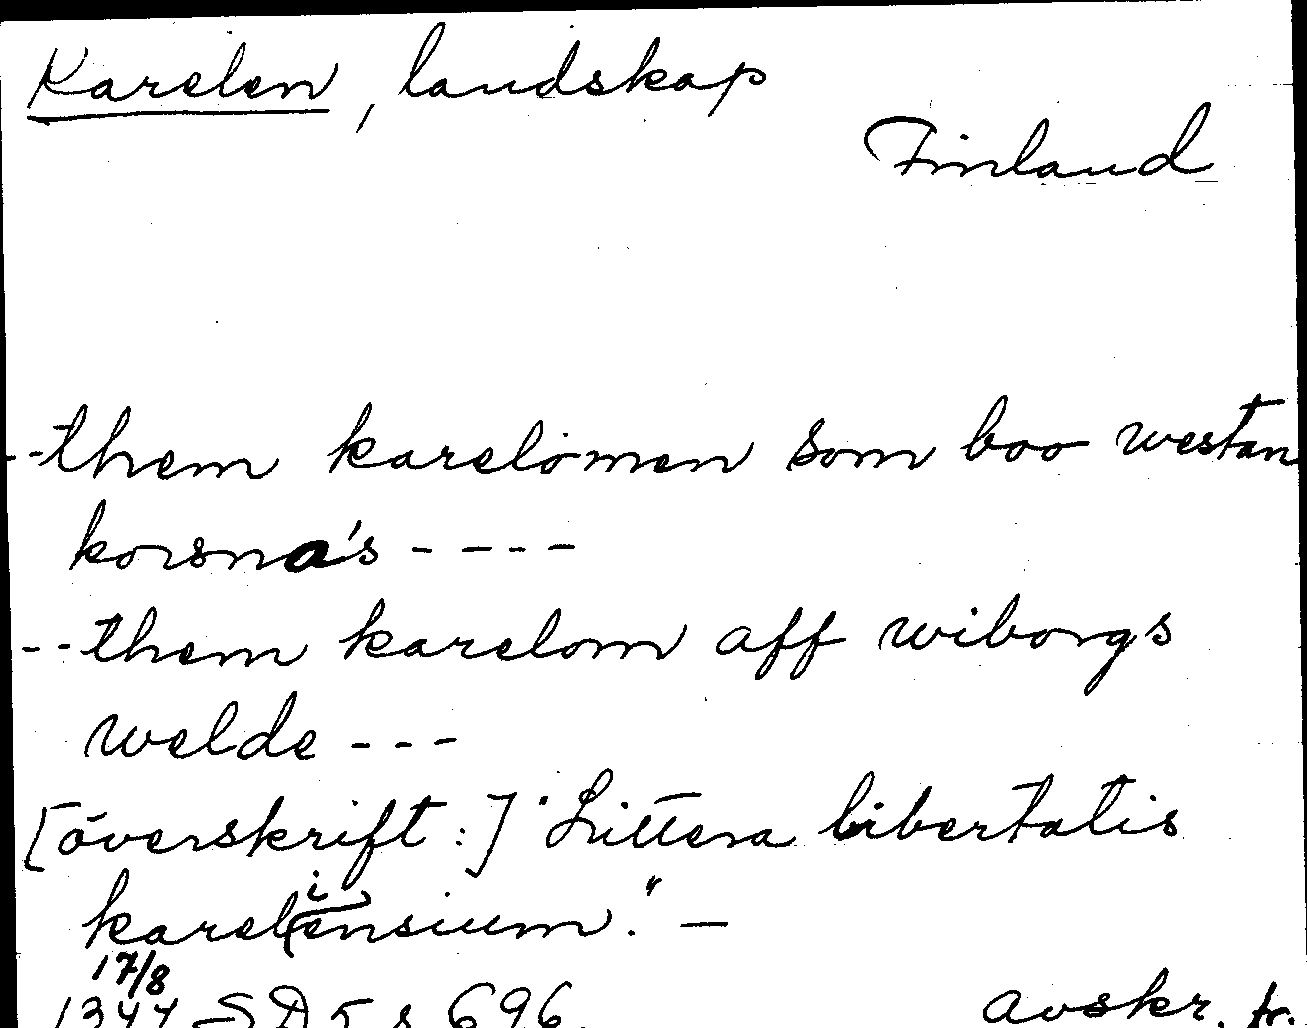 Karelen, landskap
Finland
--them karelomen som boo westan
korsnäs ----
--them karelom aff wiborgs
welde ---
[överskrift:] "Littera libertatis
karelensium". —
17/8
1344 SD 5 s 696. avskr. tr.